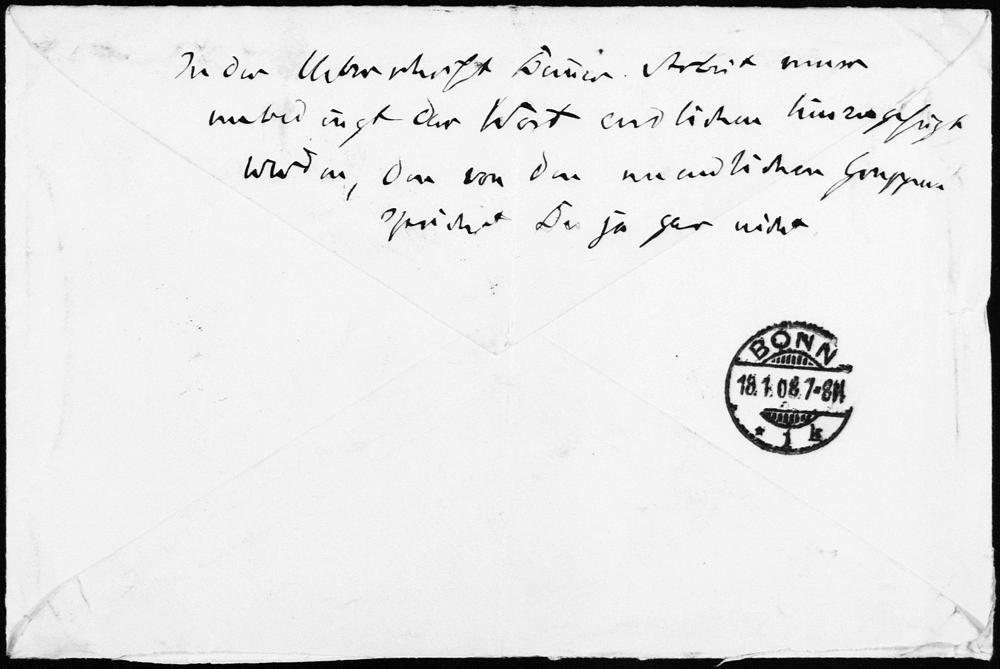 In der Ueberschrift Deiner Arbeit muss
unbedingt das Wort endlichen hinzugefügt
werden, denn von den unendlichen Gruppen
sprichst Du ja gar nicht
BONN
18.1.08.7-8N
* 1 k